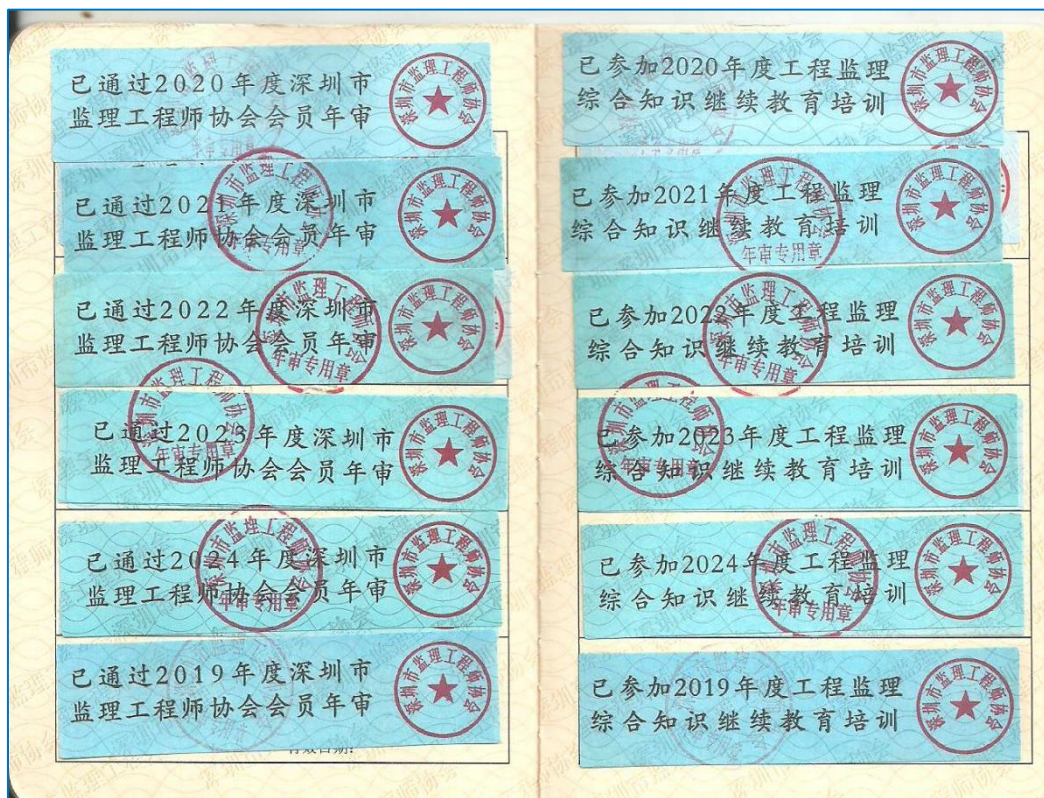 已通过2020年度深圳市
监理工程师协会会员年审
深圳市监理工程师协会
已通过2021年度深圳市
监理工程师协会会员年审
深圳市监理工程师协会
深圳市监理工程师协会
年审专用章
已通过2022年度深圳市
监理工程师协会会员年审
深圳市监理工程师协会
深圳市监理工程师协会
年审专用章
已通过2023年度深圳市
监理工程师协会会员年审
深圳市监理工程师协会
深圳市监理工程师协会
年审专用章
已通过2024年度深圳市
监理工程师协会会员年审
深圳市监理工程师协会
深圳市监理工程师协会
年审专用章
已通过2019年度深圳市
监理工程师协会会员年审
深圳市监理工程师协会
已参加2020年度工程监理
综合知识继续教育培训
深圳市监理工程师协会
已参加2021年度工程监理
综合知识继续教育培训
深圳市监理工程师协会
深圳市监理工程师协会
年审专用章
已参加2022年度工程监理
综合知识继续教育培训
深圳市监理工程师协会
深圳市监理工程师协会
年审专用章
已参加2023年度工程监理
综合知识继续教育培训
深圳市监理工程师协会
深圳市监理工程师协会
年审专用章
已参加2024年度工程监理
综合知识继续教育培训
深圳市监理工程师协会
深圳市监理工程师协会
年审专用章
已参加2019年度工程监理
综合知识继续教育培训
深圳市监理工程师协会